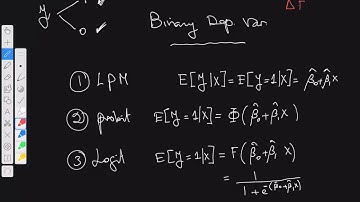 y
0
ΔF
Binary Dep. Var
① LPM E[y|x] = E[y=1|x] = β̂₀+β̂₁x
② probit E[y=1|x] = Φ(β̂₀+β̂₁x)
③ Logit E[y=1|x] = F(β̂₀+β̂₁x)
= 1 / 1 + e^-(β̂₀+β̂₁x)